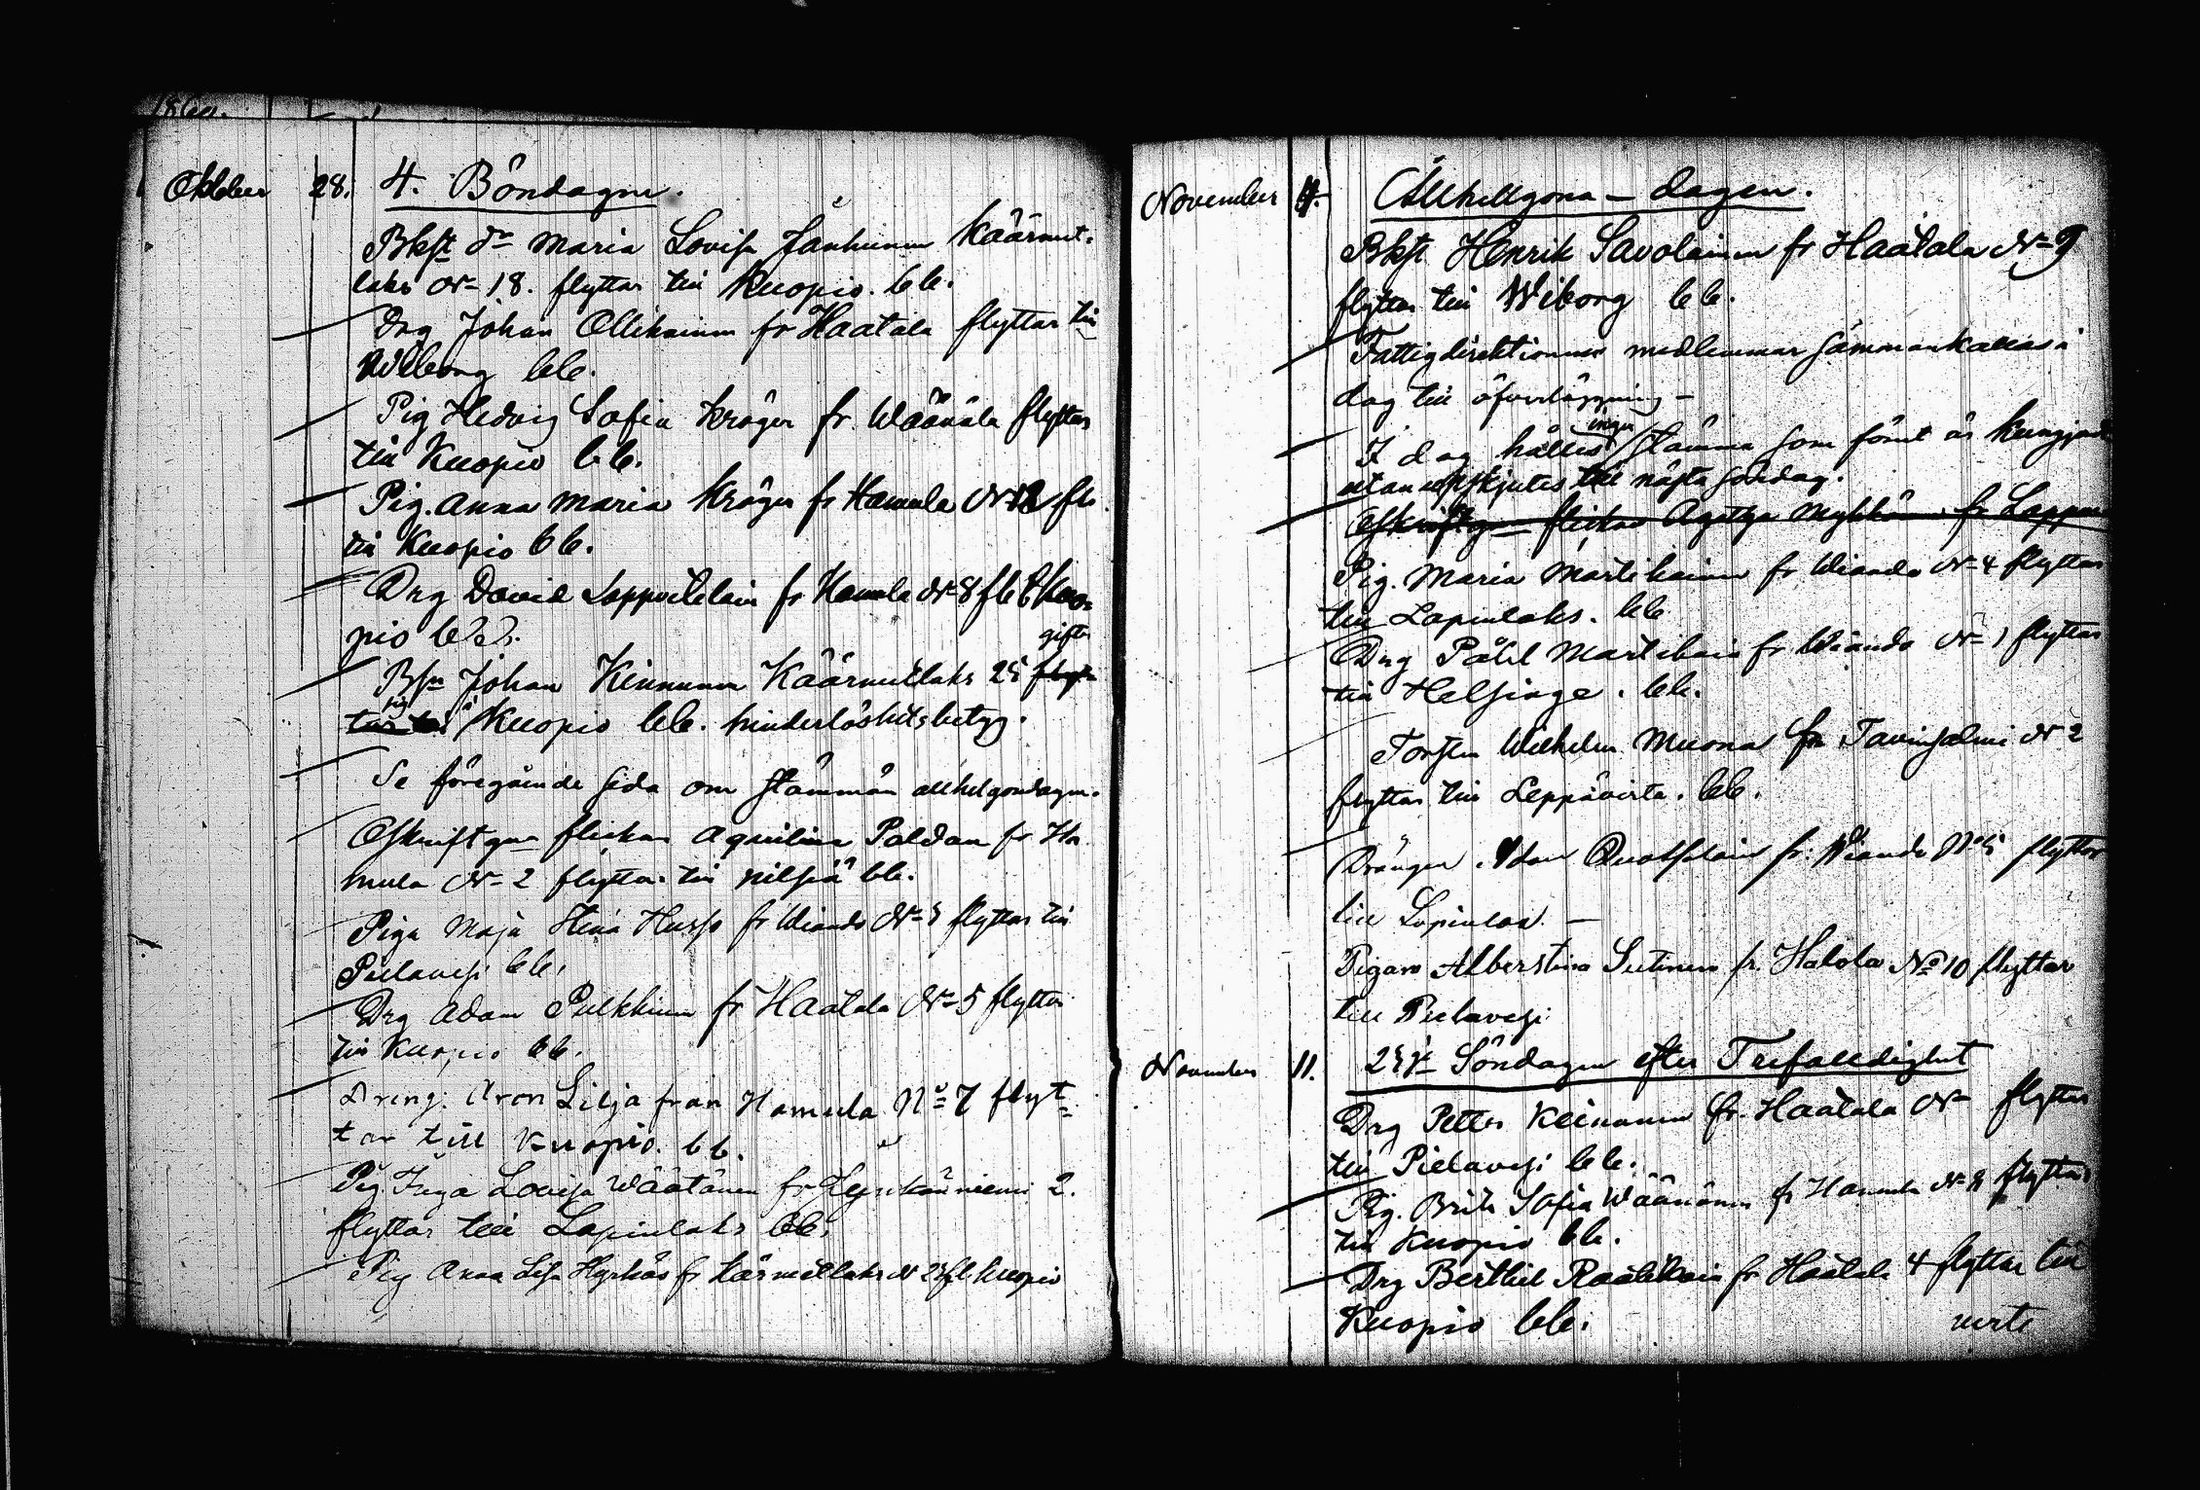 1860.
Oktober 28. 4. Böndagen.
Bkfr dr Maria Lovisa Jänhunen Käärmet-
laks No 18. flyttar till Kuopio. bb.
Drg Johan Ollikainen fr Haatala flyttar till
Wiborg bb.
Pig Hedvig Sofia Kröger fr. Wäänälä flyttar
till Kuopio bb.
Pig. Anna Maria Kröger fr Hamula No 12 fl.
till Kuopio bb.
Drg David Lappetelain fr Hamula No 8 fl t Kuo-
pio bb.
gifter
Bsn Johan Kinnunen Käärmetlaks 25 flyt-
sig i
tar till Kuopio bb. hinderlöshetsbetyg.
Se föregående sida om stämman allhelgondagen.
Afskriftgn flickan Aquilina Paldan fr Ha
mula No 2 flyttar till Nilsiä bb.
Piga Maja Stina Husso fr Wiando No 5 flyttar till
Pielavesi bb.
Drg Adam Pulkkinen fr Haatala No 5 flyttar
till Kuopio bb.
Dreng. Aron Lilja från Hamula No 7 flyt-
tar till Kuopio. bb.
Pig. Inga Lovisa Wäätänen fr 2.
flyttar till Lapinlaks bb.
Pig Anna Lisa Hyvkäs fr Kärmetlaks N 23 fl. Kuopio
November 4. Allhellgona - dagen.
Bkfr Henrik Savolainen fr Haatala No 9
flyttar till Wiborg bb.
Fattigdirektionens medlemmar sammankallas i
dag till öfverläggning -
inga
I dag hålles stämma som förut är kungjord
utan uppskjutes till nästa söndag.
Afskriftgn flickan Agatha Mykkänen fr Lappu
Pig. Maria Martikainen fr Wiando No 4 flyttar
till Lapinlaks. bb
Drg Påhl Martikain fr Wiando No 1 flyttar
till Helsinge. bb.
Torsten Wilhelm Muona fr Tavinsalmi No 2
flyttar till Leppävirta. bb.
Drängen Adam fr. Wiando No 5 flyttar
till Lapinlax. -
Pigan Albertina Sutinen fr. Halola No 10 flyttar
till Pielavesi
November 11. 23de Söndagen efter Trefalldighet
Drg Petter Keinänen fr. Haatala No flyttar
till Pielavesi bb.
Pig. Brita Sofia Wäänänen fr Hamula No 8 flyttar
till Kuopio bb.
Drg Berthil Raatikain fr Haatala 4 flyttar till
Kuopio bb.
verte